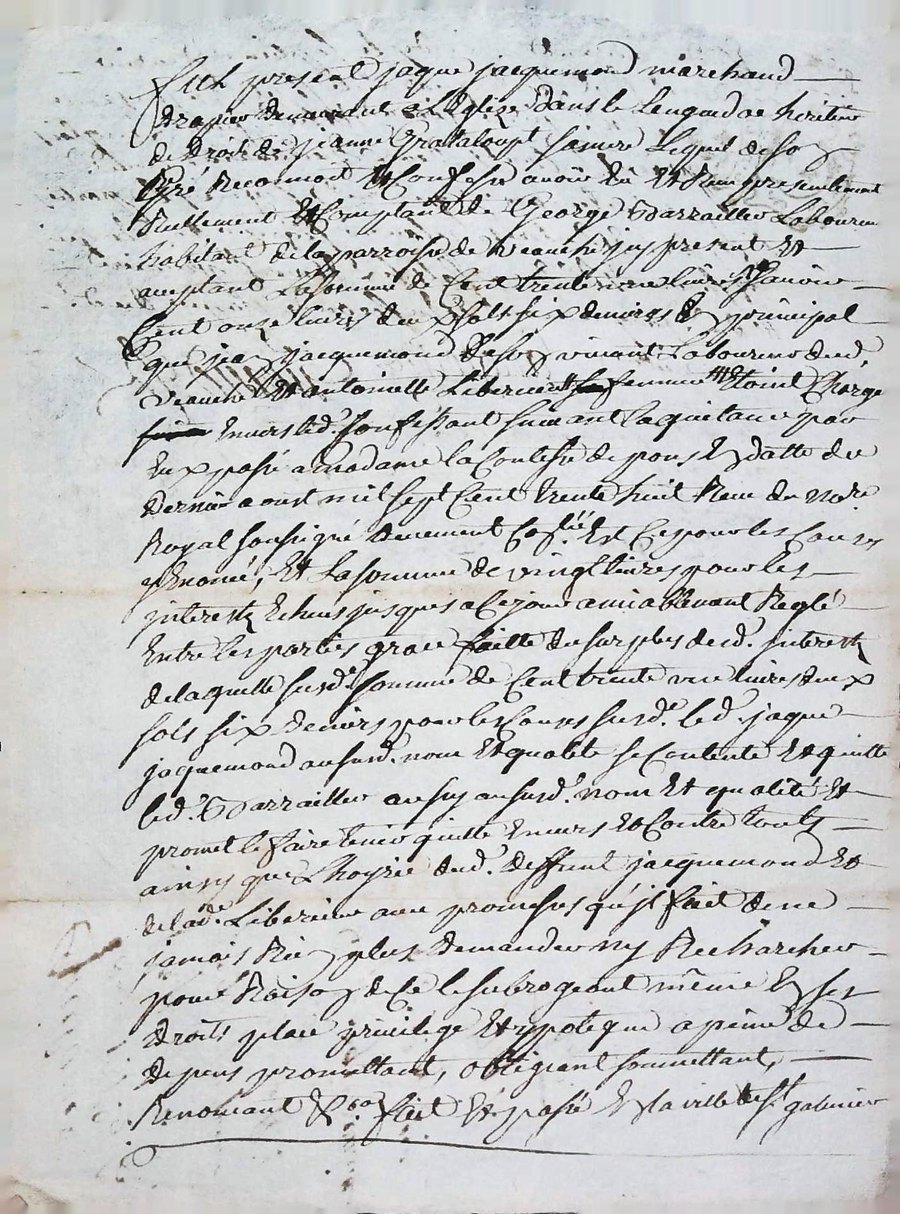 fut present jaque jacquemond marchand
drapier demeurant a L'Eglise dans le Lenguedoc heritier
de Droit de jeanne Grataloupt sa mere Lequel de son
gré Reconnoit Et Confesse avoir Eu Et Reçu presentement
Reellement Et Comptant de George Barrailler Laboureur
habitant de la parroisse de veauche jcy present Et
aceptant La somme de Cent trente une livres sçavoir
Cent onze livres deux solts six deniers En principal
que jean jacquemond de son vivant Laboureur dud.
veauche Et antoinette Liberiere sa femme Etoint Chargé
Envers led. Confessant suivant la quitance par
Eux passé a madame la Contesse de pons En datte du
dernier aoust mil sept Cent trente huit Reçue du no.re
Royal soussigné deuement Co.lé Et Ce pour les Causes
y Enoncé, Et La somme de vingt livres pour les
interestz Echeus jusques a Ce jour amiablement Reglé
Entre les parties grace faitte du surplus desd. jnterestz
de laquelle susd. somme de Cent trente une livres deux
sols six deniers pour les Causes susd. led. jaque
jaquemond ausd. nom Et qualité se Contente Et quitte
led. Barrailler aussy ausd. nom Et qualité Et
promet le faire tenir quitte Envers Et Contre touts
ainsy que L'hoyrie dud. deffunt jacquemond Et
de lad. Liberiere avec promesses qu'jl fait de ne
jamais Rien plus demander ny Recharcher
pour Raison de Ce le subrogeant même En ses
droits place privilege Et ypoteque a peine de
depens promettant, obligeant soumettant,
Renonçant &.a fait Et passé En la ville de St galmier